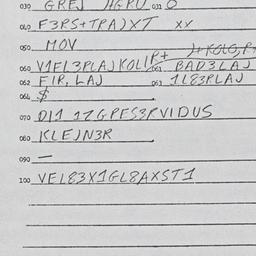 030 GREJ HGRU 031 O
040 F3RS+TRAJXT XX
050 MOV
060 V1FL3PLAJKOLIR+ 061 BAD3LAJ
062 FIR, LAJ 063 1L83RLAJ
064 $
070 DI1 1ZGPES3RVIDUS
080 KLEJN3R
090 —
100 VEL83X1GL8AXST1